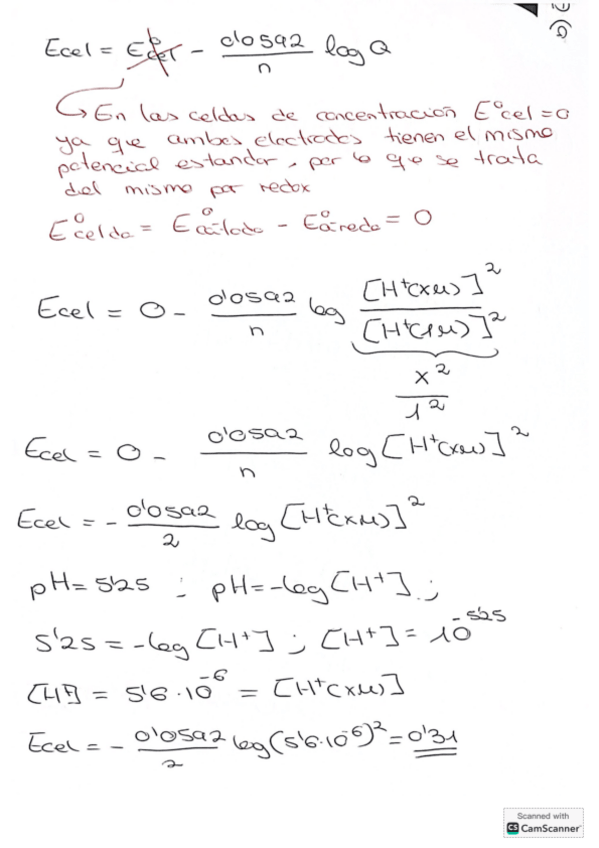 2(9
Ecel = E°cel - 0'0592/n log Q
En las celdas de concentración E°cel = 0
ya que ambos electrodos tienen el mismo
potencial estandar, por lo que se trata
del mismo par redox
E°celda = E°cátodo - E°ánodo = 0
Ecel = 0 - 0'0592/n log [H⁺(xM)]²/[H⁺(1M)]²
x²/1²
Ecel = 0 - 0'0592/n log [H⁺(xM)]²
Ecel = - 0'0592/2 log [H⁺(xM)]²
pH = 5'25 ; pH = -log [H⁺] ;
5'25 = -log [H⁺] ; [H⁺] = 10^-5'25
[H⁺] = 5'6·10⁻⁶ = [H⁺(xM)]
Ecel = - 0'0592/2 log (5'6·10⁻⁶)² = 0'31
Scanned with
CS CamScanner